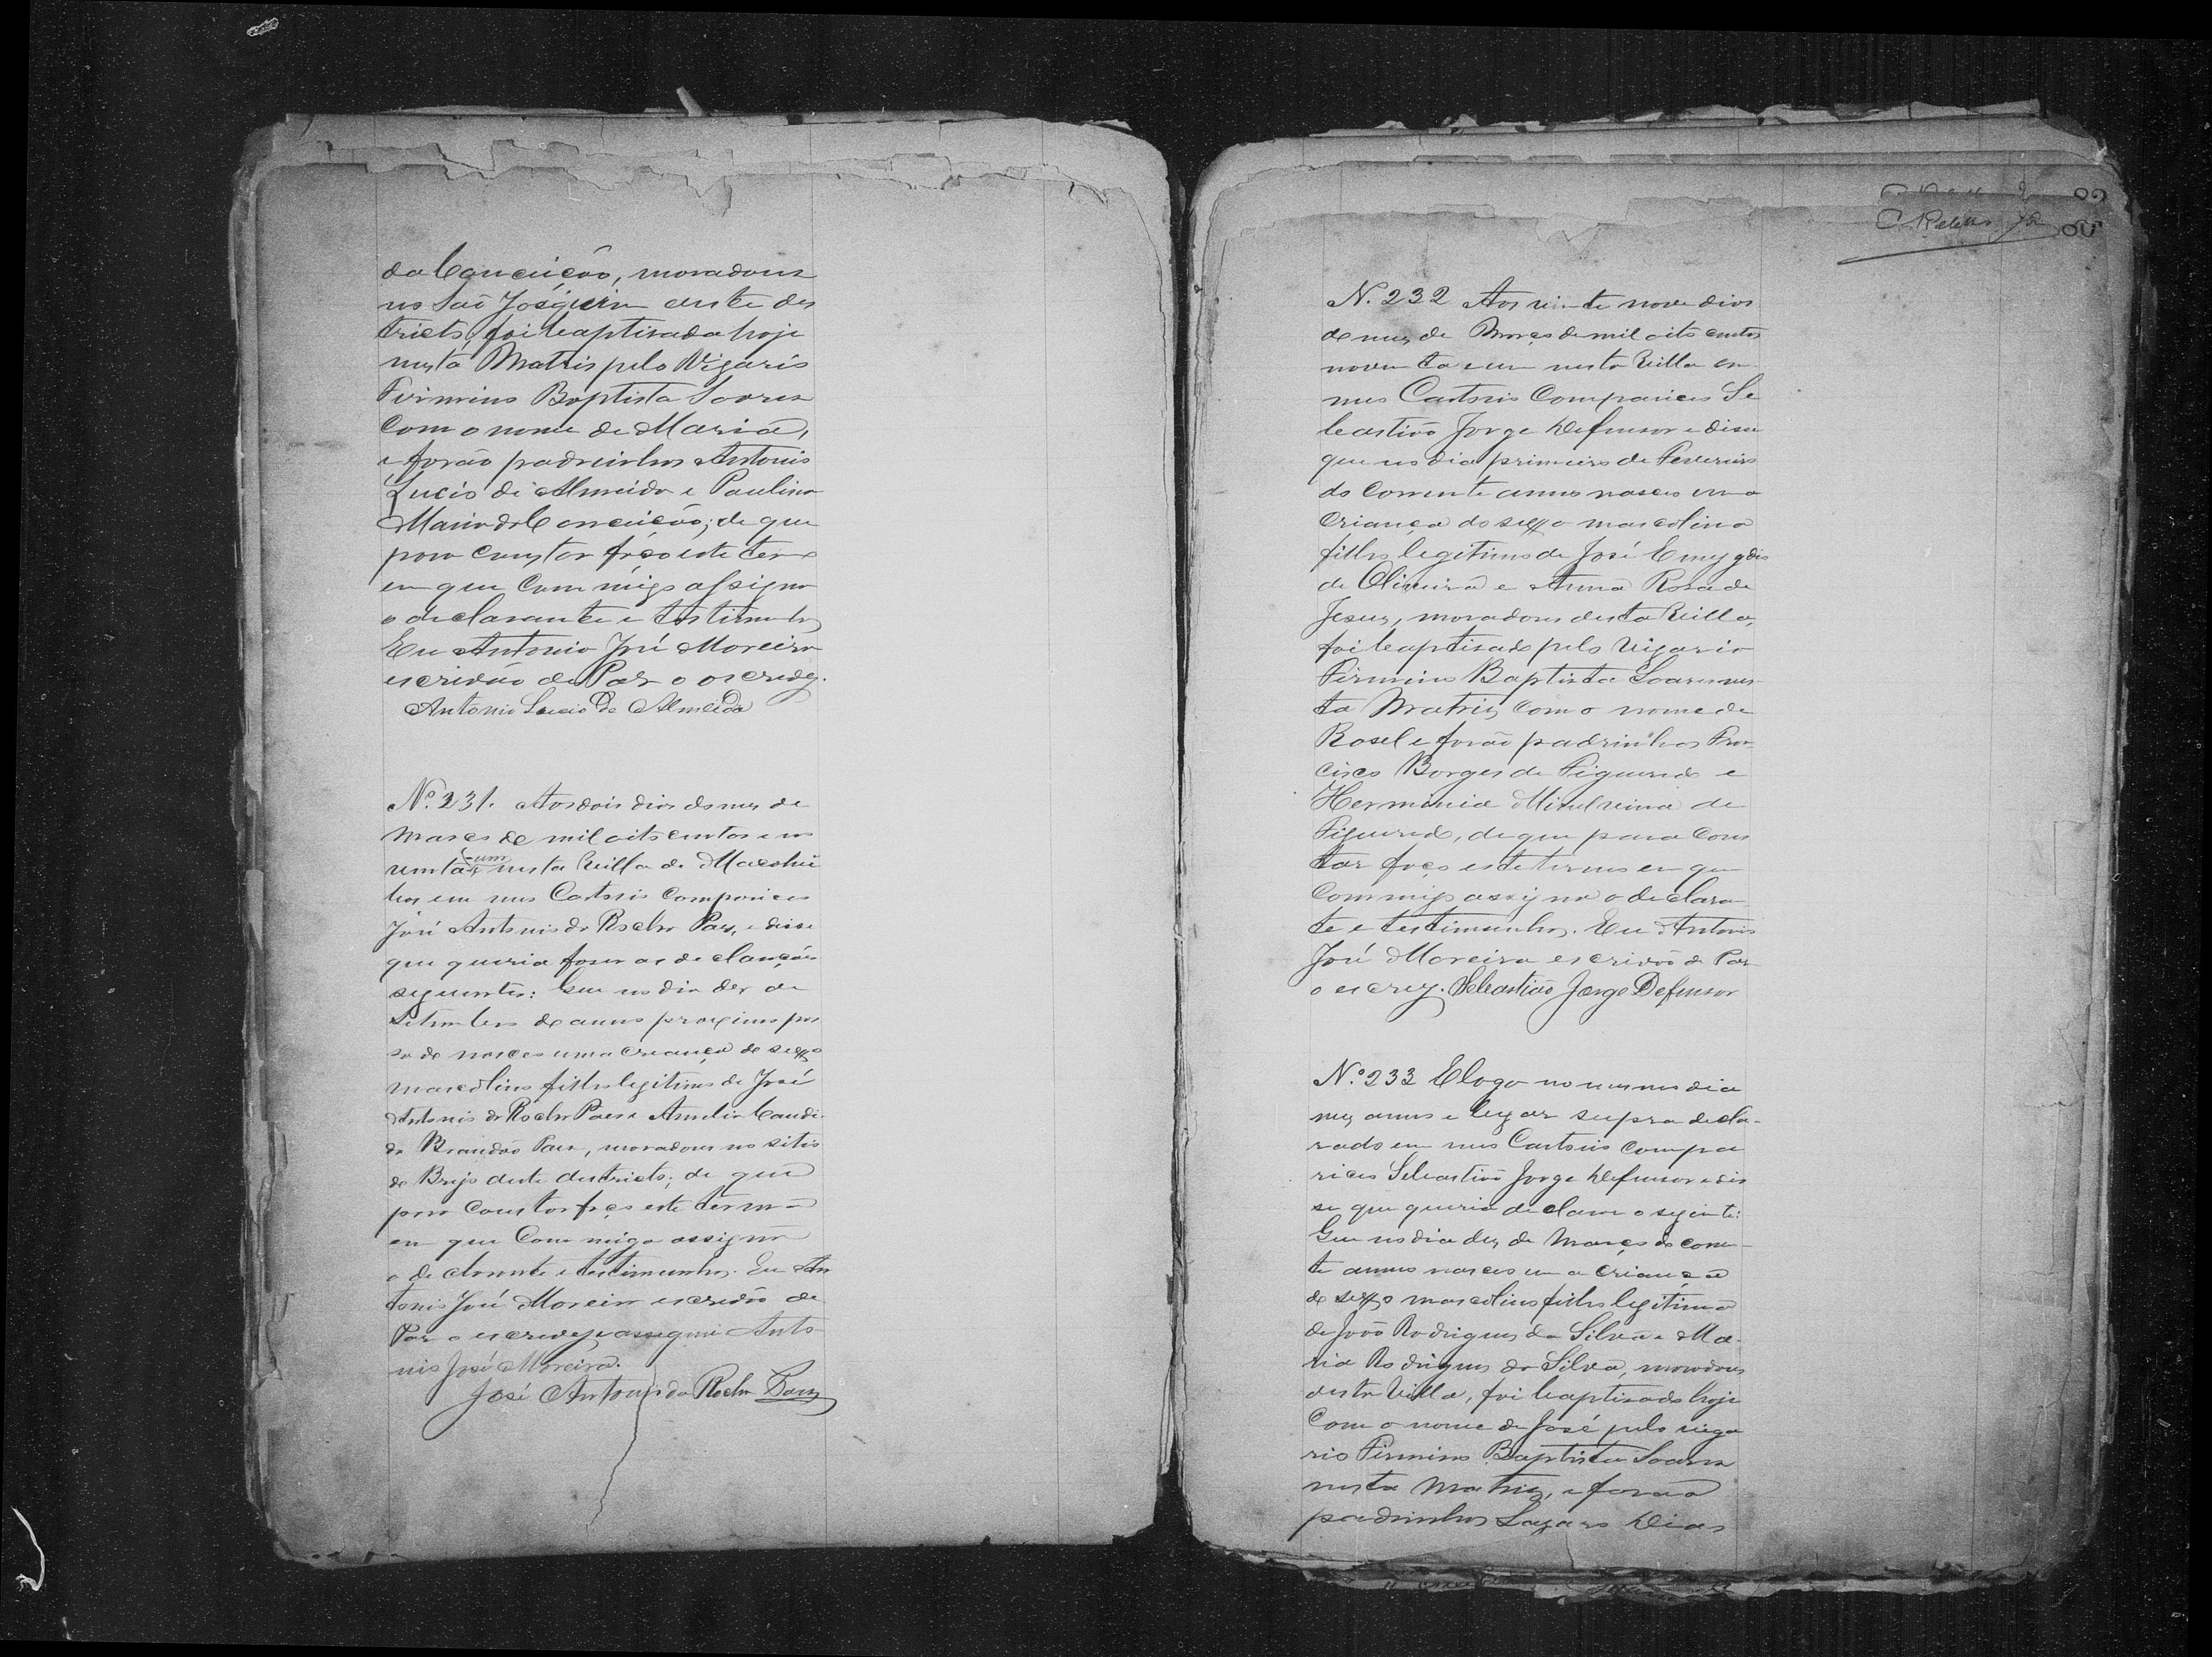 da Conceição, moradores
no São Joaquim deste des
tricto, foi baptisada hoje
nesta Matris pelo Vigario
Firmino Baptista Soares
Com o nome de Maria,
e forão padrinhos Antonio
Lucio de Almeida e Paulina
Maria da Conceição; de que
para constar faço este termo
em que commigo assigna
o declarante e testimunhas
Eu Antonio José Moreira
escrivão de Paz o escrevy.
Antonio Lucio de Almeida
Nº 231. Aos dois dias do mes de
Março de mil oito centos e no
venta e um nesta Villa de
em meu Cartorio Compareceo
José Antonio da Rocha Paes, e disse
que queria faser as declarações
seguintes: Que no dia dez de
Setembro do anno proximo pas
sado nasceo uma criança de sexo
mascolino filho legitimo de José
Antonio da Rocha Paes e Amelia Candi
da Brandão Paes, moradores no sitio
do Brejo deste destricto; de que
para constar faço este termo
em que Commigo assigna
o declarante e testimunhas. Eu An
tonio José Moreira escrivão de
Paz o escrevy e assignei Anto
nio José Moreira.
José Antonio da Rocha Paes
N. 232 Aos vinte nove dias
do mes de Março de mil oito centos
noventa e um nesta Villa em
meu Cartorio Compareceu Se
bastião Jorge Defensor e disse
que no dia primeiro de Fevereiro
do Corrente anno nasceo uma
Criança do sexo mascolino
filho legitimo de José Emygdio
de Oliveira e Anna Rosa de
Jesus, moradores desta Villa,
foi baptisado pelo Vigario
Firmino Baptista Soares nes
ta Matriz Com o nome de
Rosel e forão padrinhos Fran
cisco Borges de Figueredo e
Herminia Minelvina de
Figueredo, de que para Cons
tar faço este termo em que
Commigo assigna o declaran
te e testimunhas. Eu Antonio
José Moreira escrivão de Paz
o escrevy. Sebastião Jorge Defensor
N.º 233 E logo no mesmo dia
mes anno e lugar supra decla-
rado em meu Cartorio compa
receo Sebastião Jorge Defensor e dis
se que queria declarar o seguinte:
Que no dia dez de Março do corren
te anno nasceo uma criança
do sexo mascolino filho legitimo
de João Rodrigues da Silva e Ma
ria Rodrigues da Silva, moradores
desta Villa, foi baptisado hoje
Com o nome de José pelo viga
rio Firmino Baptista Soares
nesta Matriz, e forão
padrinhos Lazaro Dias